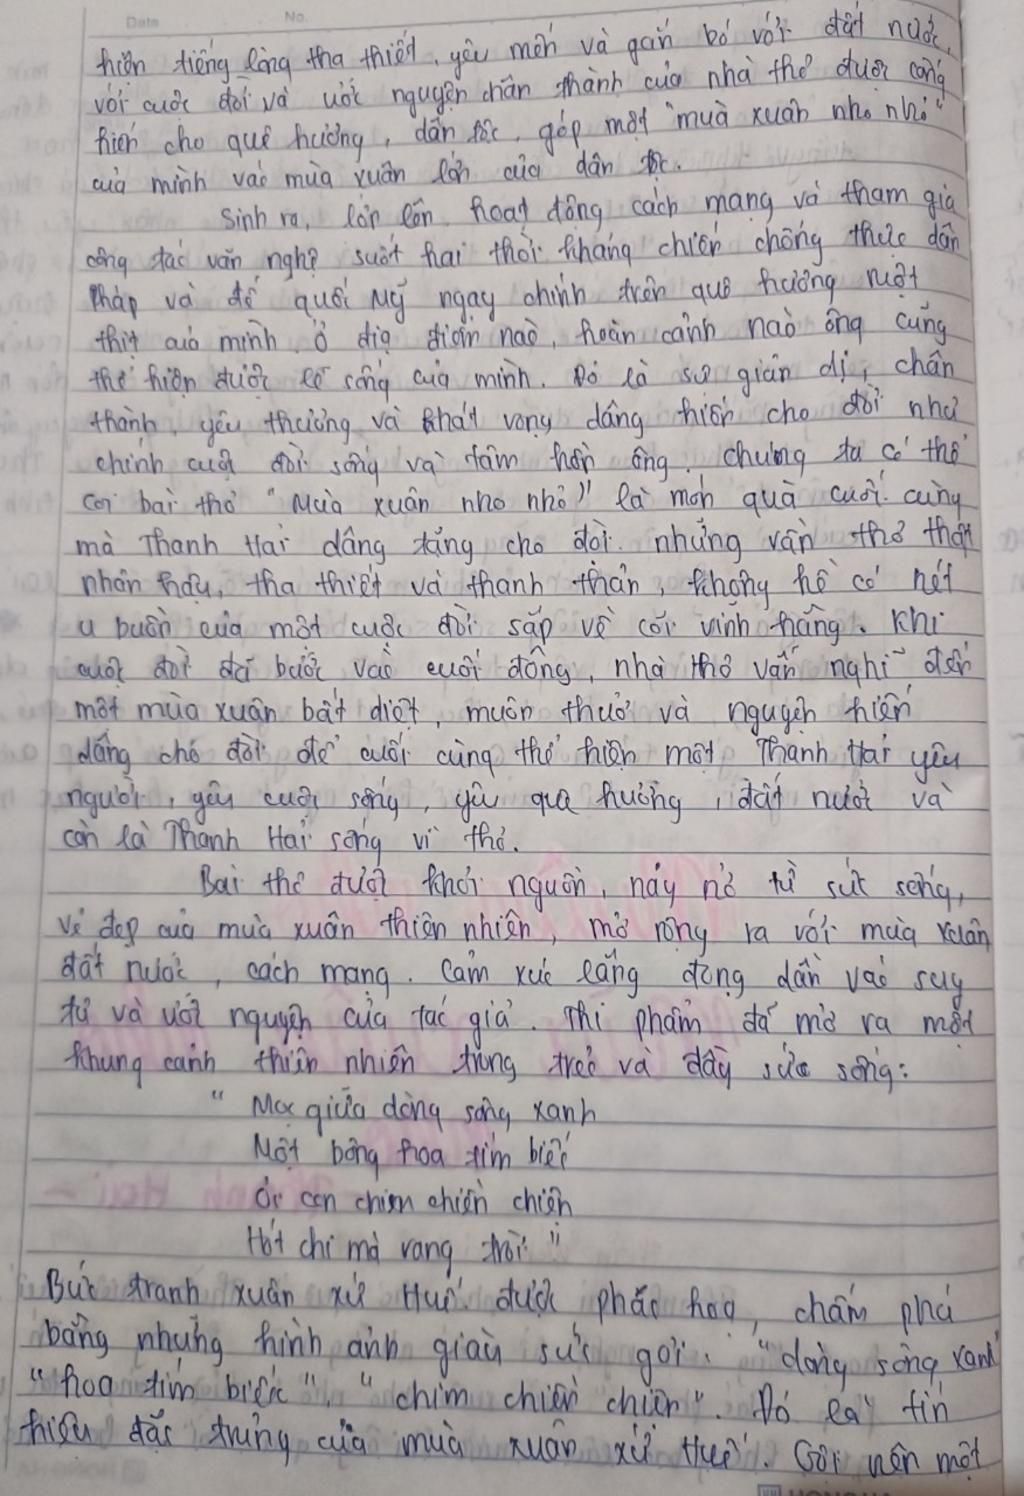 Date No.
hiện tiếng lòng tha thiết, yêu mến và gắn bó với đất nước,
với cuộc đời và ước nguyện chân thành của nhà thơ được cống
hiến cho quê hương, dân tộc, góp một "mùa xuân nho nhỏ"
của mình vào mùa xuân lớn của dân tộc.
Sinh ra, lớn lên, hoạt động cách mạng và tham gia
công tác văn nghệ suốt hai thời kháng chiến chống thực dân
Pháp và đế quốc Mỹ ngay chính trên quê hương ruột
thịt của mình, ở địa điểm nào, hoàn cảnh nào ông cũng
thể hiện được lẽ sống của mình. Đó là sự giản dị, chân
thành, yêu thương và khát vọng dâng hiến cho đời như
chính cuộc đời sống và tâm hồn ông. Chúng ta có thể
coi bài thơ "Mùa xuân nho nhỏ" là món quà cuối cùng
mà Thanh Hải dâng tặng cho đời. những vần thơ thật
nhân hậu, tha thiết và thanh thản, không hề có nét
u buồn của một cuộc đời sắp về cõi vĩnh hằng. Khi
cuộc đời đã bước vào cuối đông, nhà thơ vẫn nghĩ đến
một mùa xuân bất diệt, muôn thuở và nguyện hiến
dâng cho đời để cuối cùng thể hiện một Thanh Hải yêu
người, yêu cuộc sống, yêu quê hương, đất nước và
còn là Thanh Hải sống vì thơ.
Bài thơ được khơi nguồn, nảy nở từ sức sống,
vẻ đẹp của mùa xuân thiên nhiên, mở rộng ra với mùa xuân
đất nước, cách mạng. Cảm xúc lắng đọng dần vào suy
tư và ước nguyện của tác giả. Thi phẩm đã mở ra một
khung cảnh thiên nhiên trong trẻo và đầy sức sống:
"Mọc giữa dòng sông xanh
Một bông hoa tím biếc
Ơi con chim chiền chiện
Hót chi mà vang trời"
Bức tranh xuân xứ Huế được phác hoạ, chấm phá
bằng những hình ảnh giàu sức gợi. "dòng sông xanh"
"hoa tím biếc", "chim chiền chiện". Đó là tín
hiệu đặc trưng của mùa xuân xứ Huế. Gợi nên một